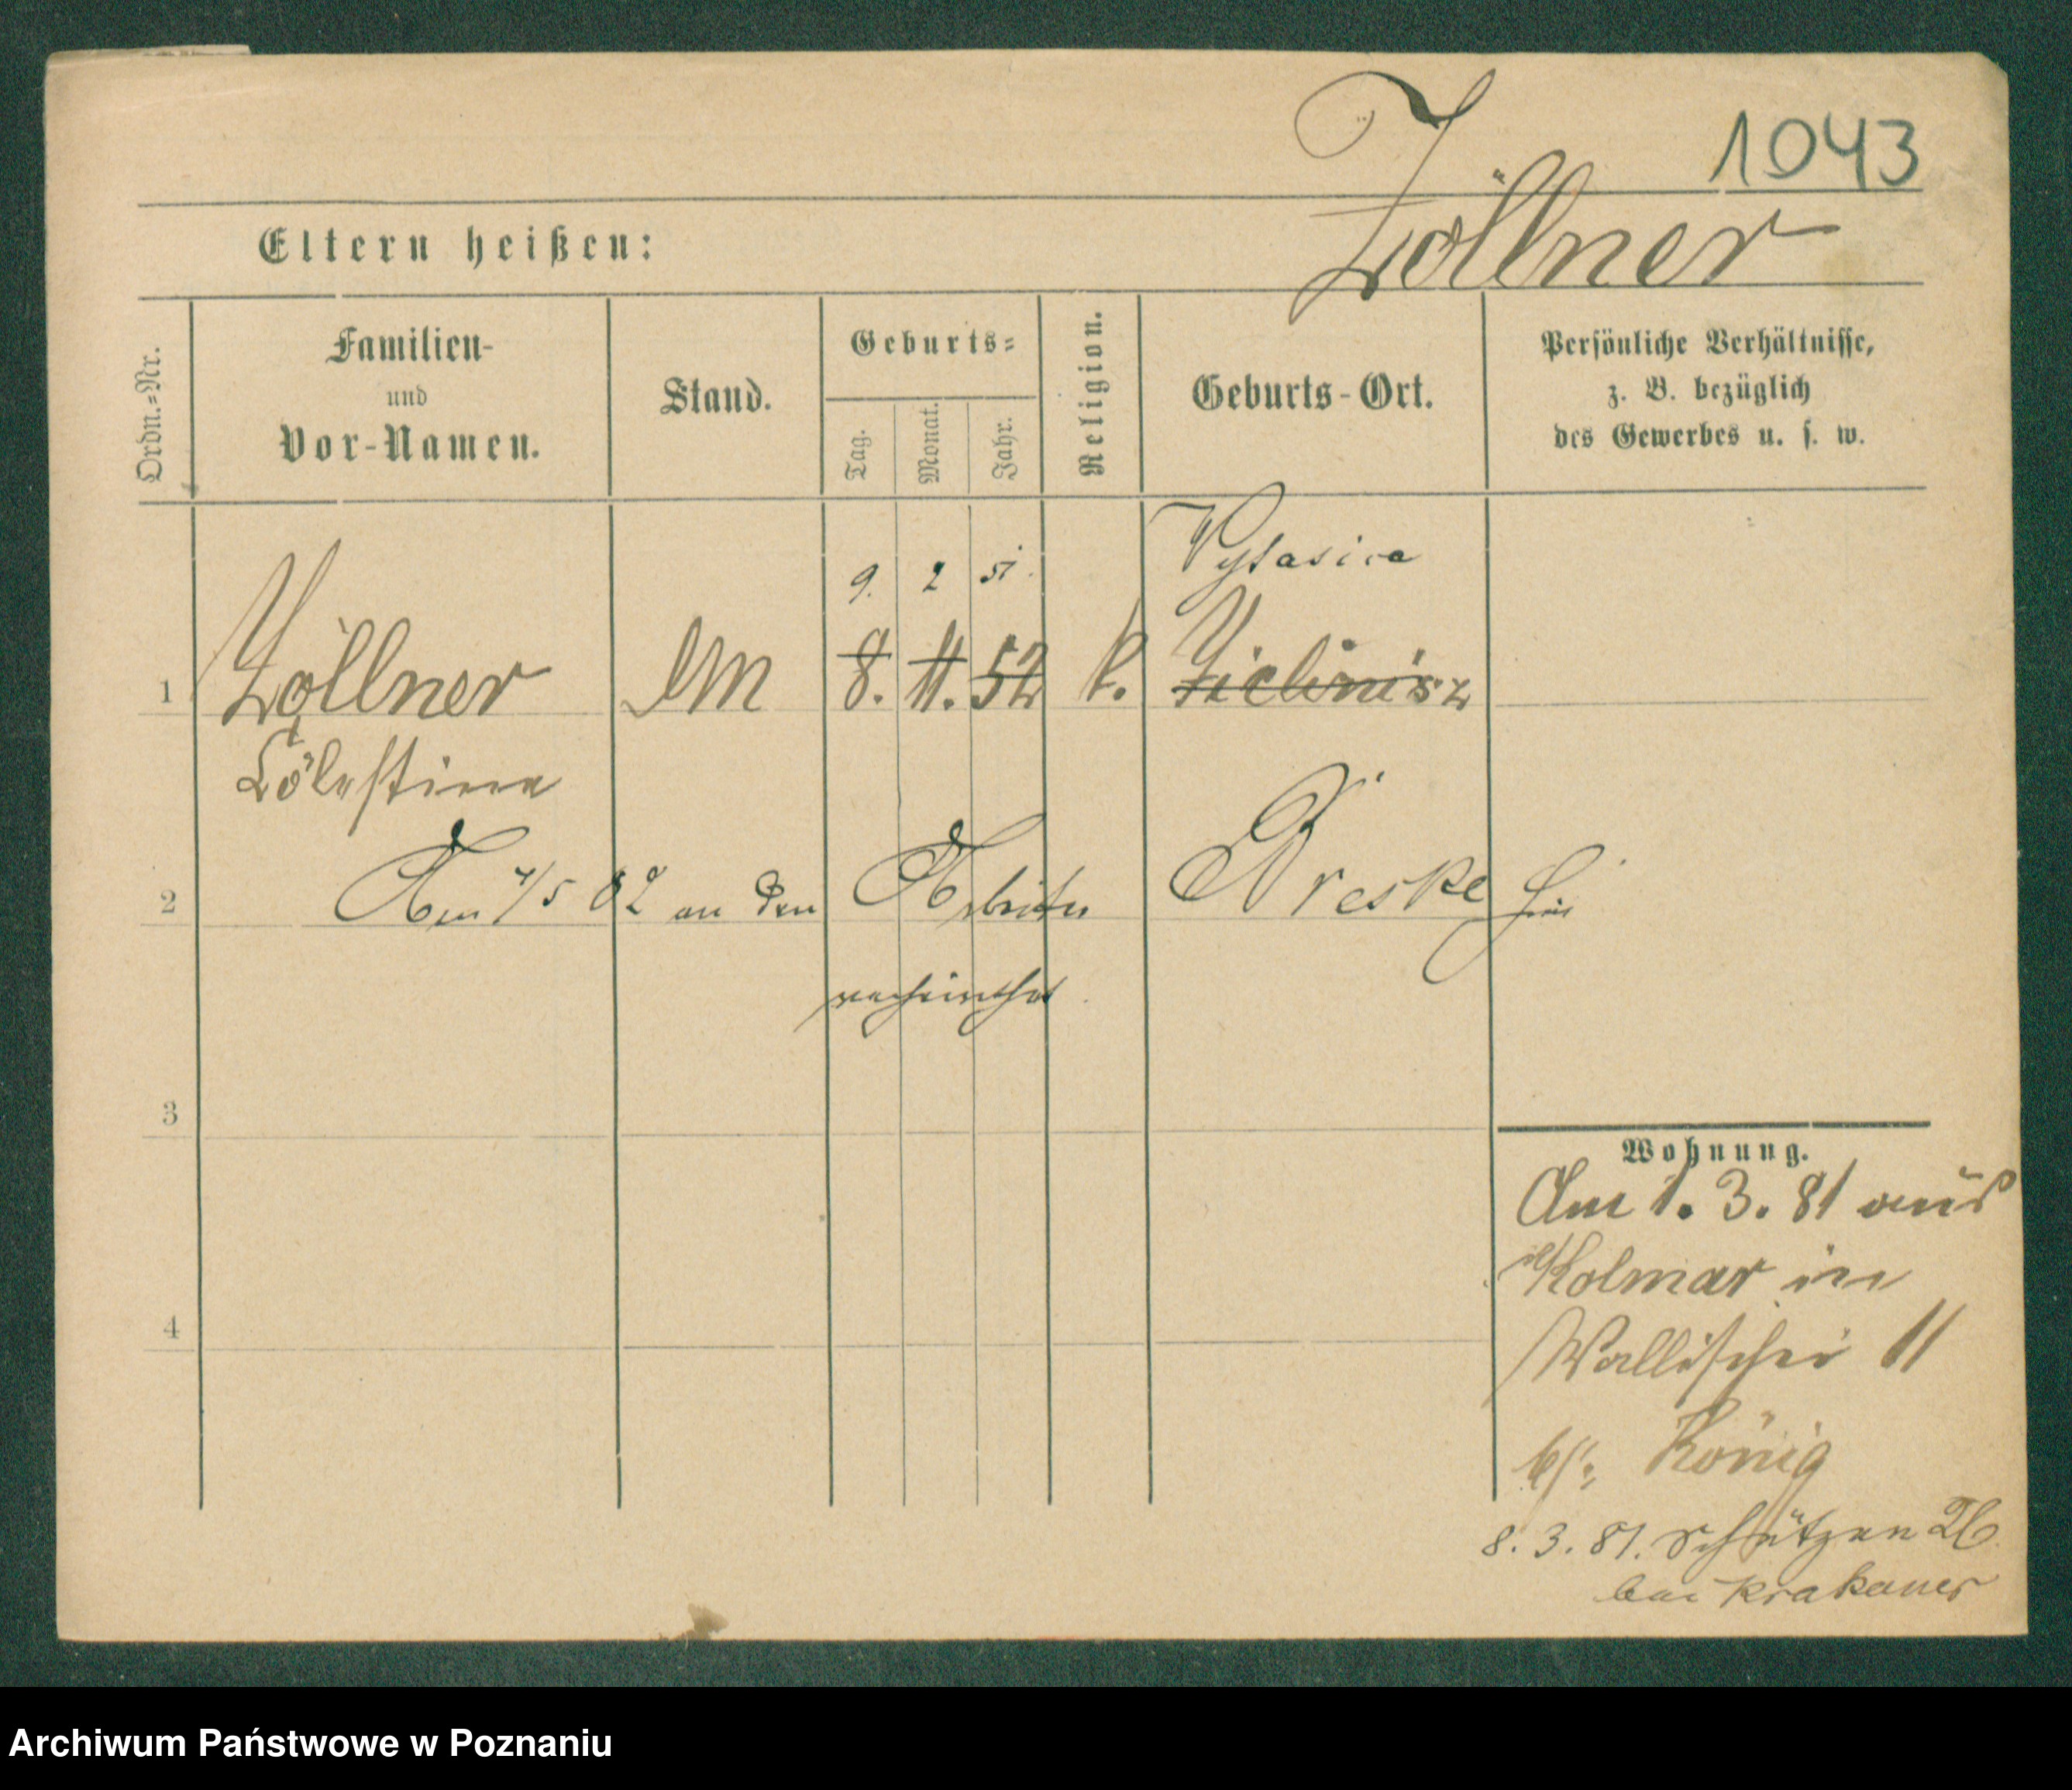 1043
Zöllner
Eltern heißen:
Ordn.-Nr.
Familien-
und
Vor-Namen.
Stand.
Geburts-
Tag.
Monat.
Jahr.
Religion.
Geburts-Ort.
Persönliche Verhältnisse,
z. B. bezüglich
des Gewerbes u. s. w.
9. 2 51.
1 Zöllner 8. 11. 52 k.
Cölestine
2 Am 4/5 82 an den Arbeiter Dreske hier
verheirathet.
3
4
Wohnung.
Am 1. 3. 81 aus
Kolmar in
Wallischei 11
b/: König
8. 3. 81. Schützen 26.
bei Krakauer
Archiwum Państwowe w Poznaniu